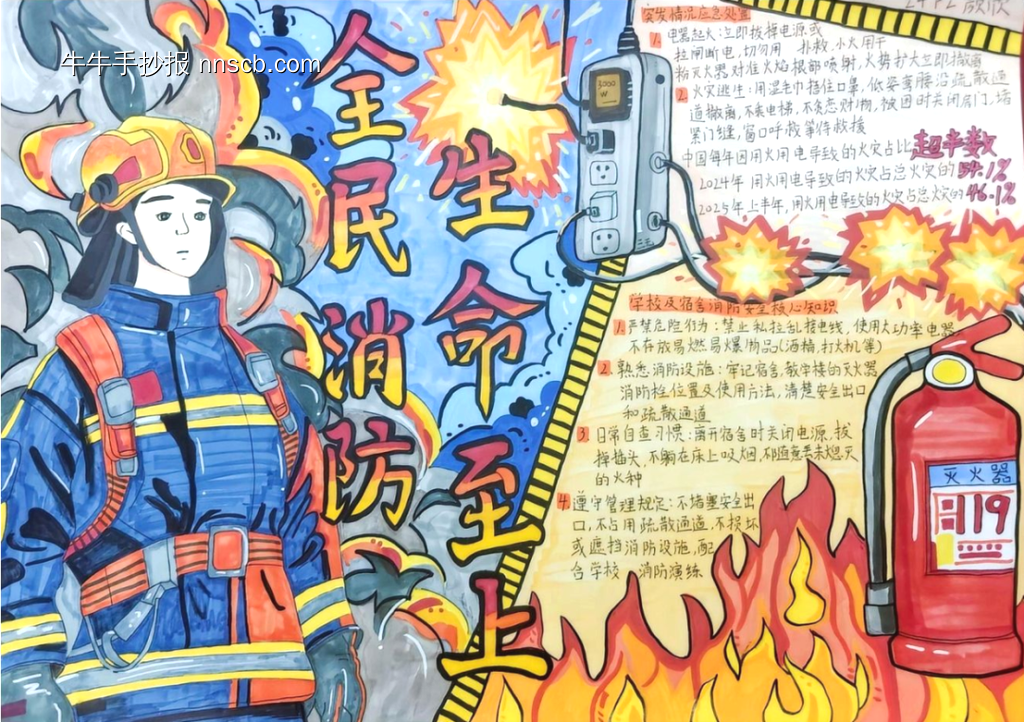 牛牛手抄报 nnscb.com
全民消防
生命至上
突发情况应急处置
1. 电器起火:立即拔掉电源或
拉闸断电,切勿用 扑救,小火用干
粉灭火器对准火焰根部喷射,火势扩大立即撤离
2. 火灾逃生:用湿毛巾捂住口鼻,低姿弯腰沿疏散通
道撤离,不乘电梯,不贪恋财物,被困时关闭房门,堵
紧门缝,窗口呼救等待救援
中国每年因用火用电导致的火灾占比超半数
2024年 用火用电导致的火灾占总火灾的
2025年上半年,用火用电导致的火灾占总火灾的46.1%
学校及宿舍消防安全核心知识
1. 严禁危险行为:禁止私拉乱接电线,使用大功率电器
不存放易燃易爆物品(酒精,打火机等)
2. 熟悉消防设施:牢记宿舍,教学楼的灭火器
消防栓位置及使用方法,清楚安全出口
和疏散通道
3. 日常自查习惯:离开宿舍时关闭电源,拔
掉插头,不躺在床上吸烟,不
的火种
4. 遵守管理规定:不堵塞安全出
口,不占用疏散通道,不损坏
或遮挡消防设施,配
合学校 消防演练
灭火器
119